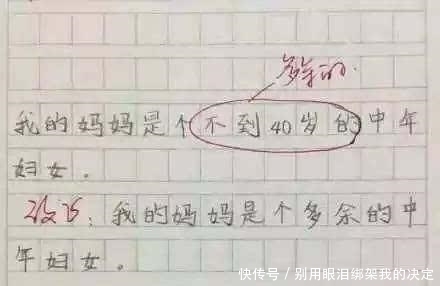 多余的.
我的妈妈是个不到40岁的中年
妇女。
改正:我的妈妈是个多余的中
年妇女。
快传号/别用眼泪绑架我的决定